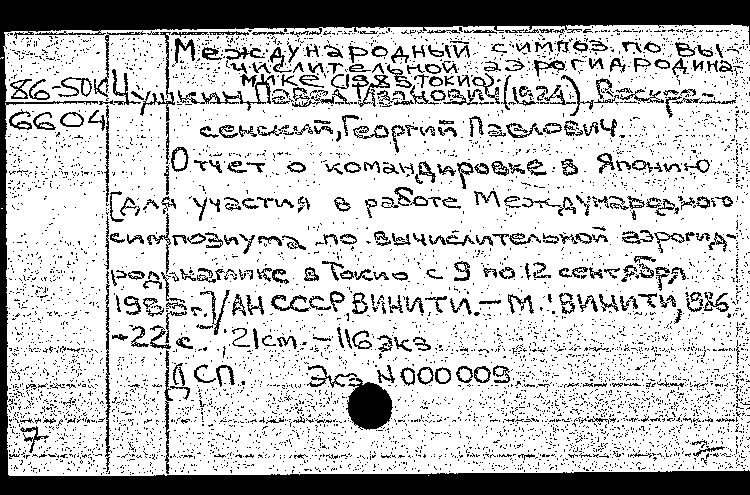 Международный симпоз. по вы-
числительной аэрогидродина-
мике (1985, Токио).
86-50К Чушкин, Павел Иванович (1924.), Воскре-
6604 сенский, Георгий Павлович.
Отчет о командировке в Японию
[для участия в работе Международного
симпозиума по вычислительной аэрогид-
родинамике в Токио с 9 по 12 сентября
1985г.]/АН СССР, ВИНИТИ. — М.: ВИНИТИ, 1986.
-22 с. 21 cm. — 116 экз.
ДСП. Экз. N 000009.
7